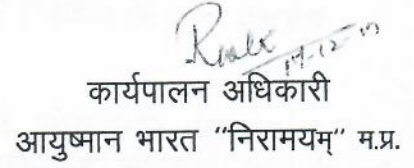 कार्यपालन अधिकारी
आयुष्मान भारत "निरामयम्" म.प्र.